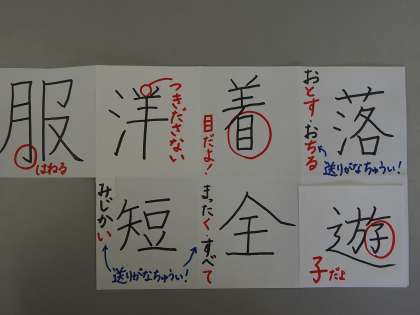 服
はねる
洋
つきださない
着
目だよ!
落
おとす・おちる
送りがなちゅうい!
短
みじかい
送りがなちゅうい!
全
まったく・すべて
遊
子だよ